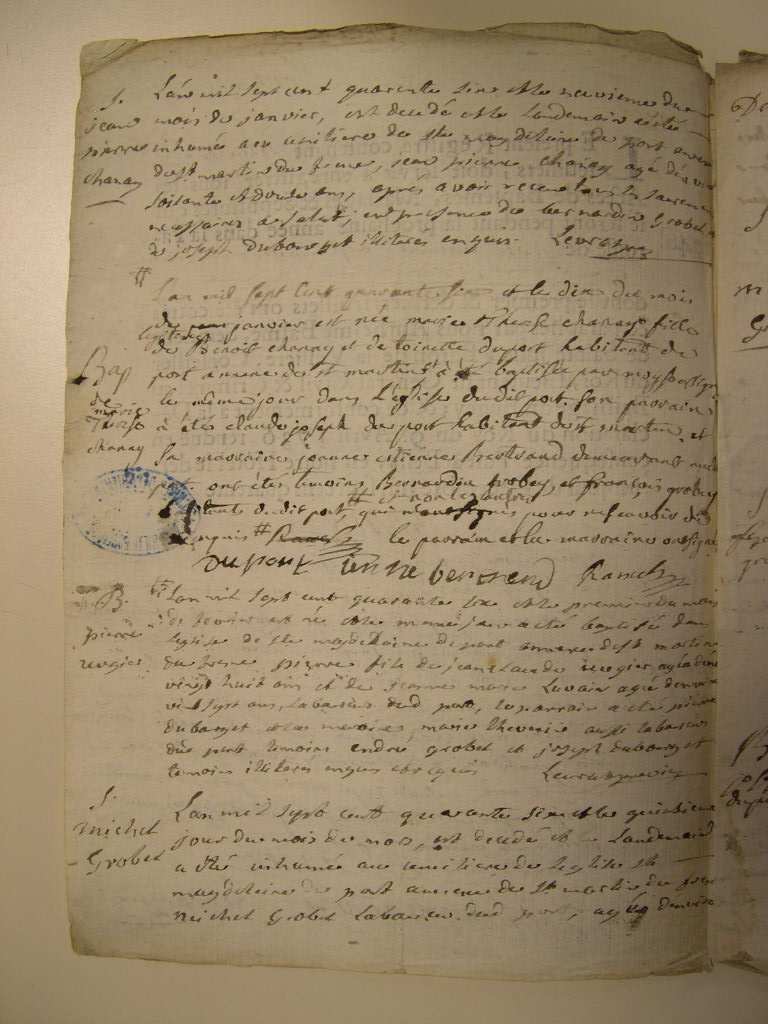 S. jean pierre chanay
L'an mil sept cent quarente sixe et le neuvieme du
mois de janvier, est decedé et le landemain a été
inhumée au cimitiere de ste magdeleine de port annexe
de st martin du frene, jean pierre chanay agé d'environ
soisante et douze ans, aprés avoir receu tous les sacremens
necessaires a salut; en presence de bernardin Grobet
& joseph dubourget illiteres enquis.
Bap de marie Therese chanay
L'an mil sept cent quarante six et le dix du mois
de janvier est née marie Therese chanay fille
légitime
de Benoit chanay et de toinette duport habitant de
port annexe de st martin a été baptisée par moy soussigné
le même jour dans L'église dudit port. son parrain
a étés claude joseph duport habitant de st martin et
sa marraine jeanne etienne Bertrand demeurant audit
port ont étés temoins Bernardin grobet, et françois grobet
habitants dudit port, qui n'ont signés pour ne sçavoir de
enquis le parrain et la marraine ont signé
duport
B. pierre reugier
L'an mil sept cent quarante sixe et le premier du mois
de fevrier est né et le meme jour a été baptisé dans
l'eglise de ste magdelaine de port annexe de st martin
du frene pierre fils de jean claude reugier agé d'environ
vingt huit ans et de jeanne marie Luvain agé d'environ
vint sept ans, laboureur dud port, le parrain a été pierre
dubourget et la maraine, marie thevenin aussi laboureur
dud port temoins andré grobet et joseph dubourget
temoins illiteres enquis et requis
S. michel Grobet
L'an mil sept cent quarante sixe et le quinzieme
jour du mois de mars, est decedé et le landemain
a été inhumée au cimitiere de l'eglise ste
magdeleine de port annexe de st martin du frene
michel Grobet laboureur dud port, agé d'environ